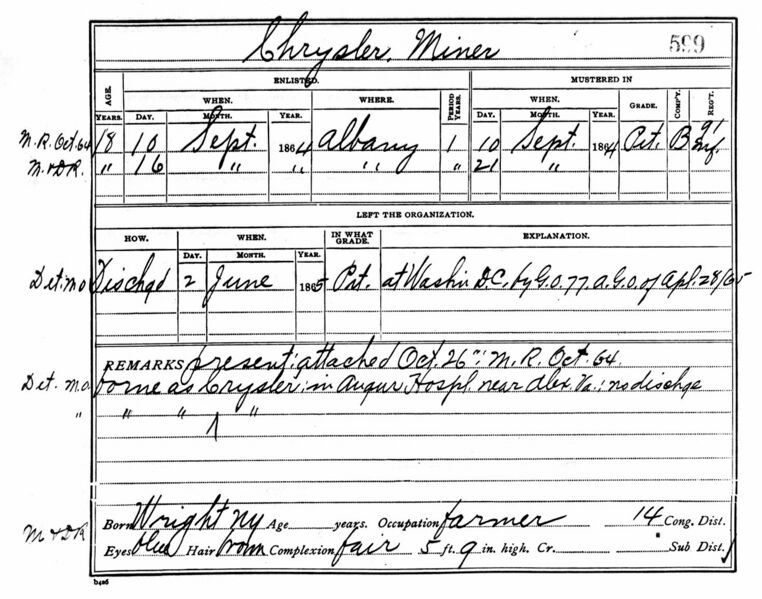 Chrysler, Miner 599
ENLISTED. MUSTERED IN
AGE. WHEN. WHERE. PERIOD YEARS. WHEN. GRADE. COMP'Y. REG'T.
YEARS. DAY. MONTH. YEAR. DAY. MONTH. YEAR.
M.R. Oct. 64 18 10 Sept. 1864 Albany 1 10 Sept. 1864 Pvt. B 91 Inf.
M. & D.R. " 16 " " " " 21 "
LEFT THE ORGANIZATION.
HOW. WHEN. IN WHAT GRADE. EXPLANATION.
DAY. MONTH. YEAR.
Det. M.O. Dischgd 2 June 1865 Pvt. at Washn D.C. by G.O. 77. A.G.O. of Apl. 28/65
REMARKS present; attached Oct. 26"; M.R. Oct. 64.
Det. M.O. borne as Crysler; in Augur Hospl near Alex Va.; no dischge
" " " "
M & DR Born Wright NY Age years. Occupation farmer 14 Cong. Dist.
Eyes blue Hair brown Complexion fair 5 ft. 9 in. high. Cr. Sub Dist.
b426